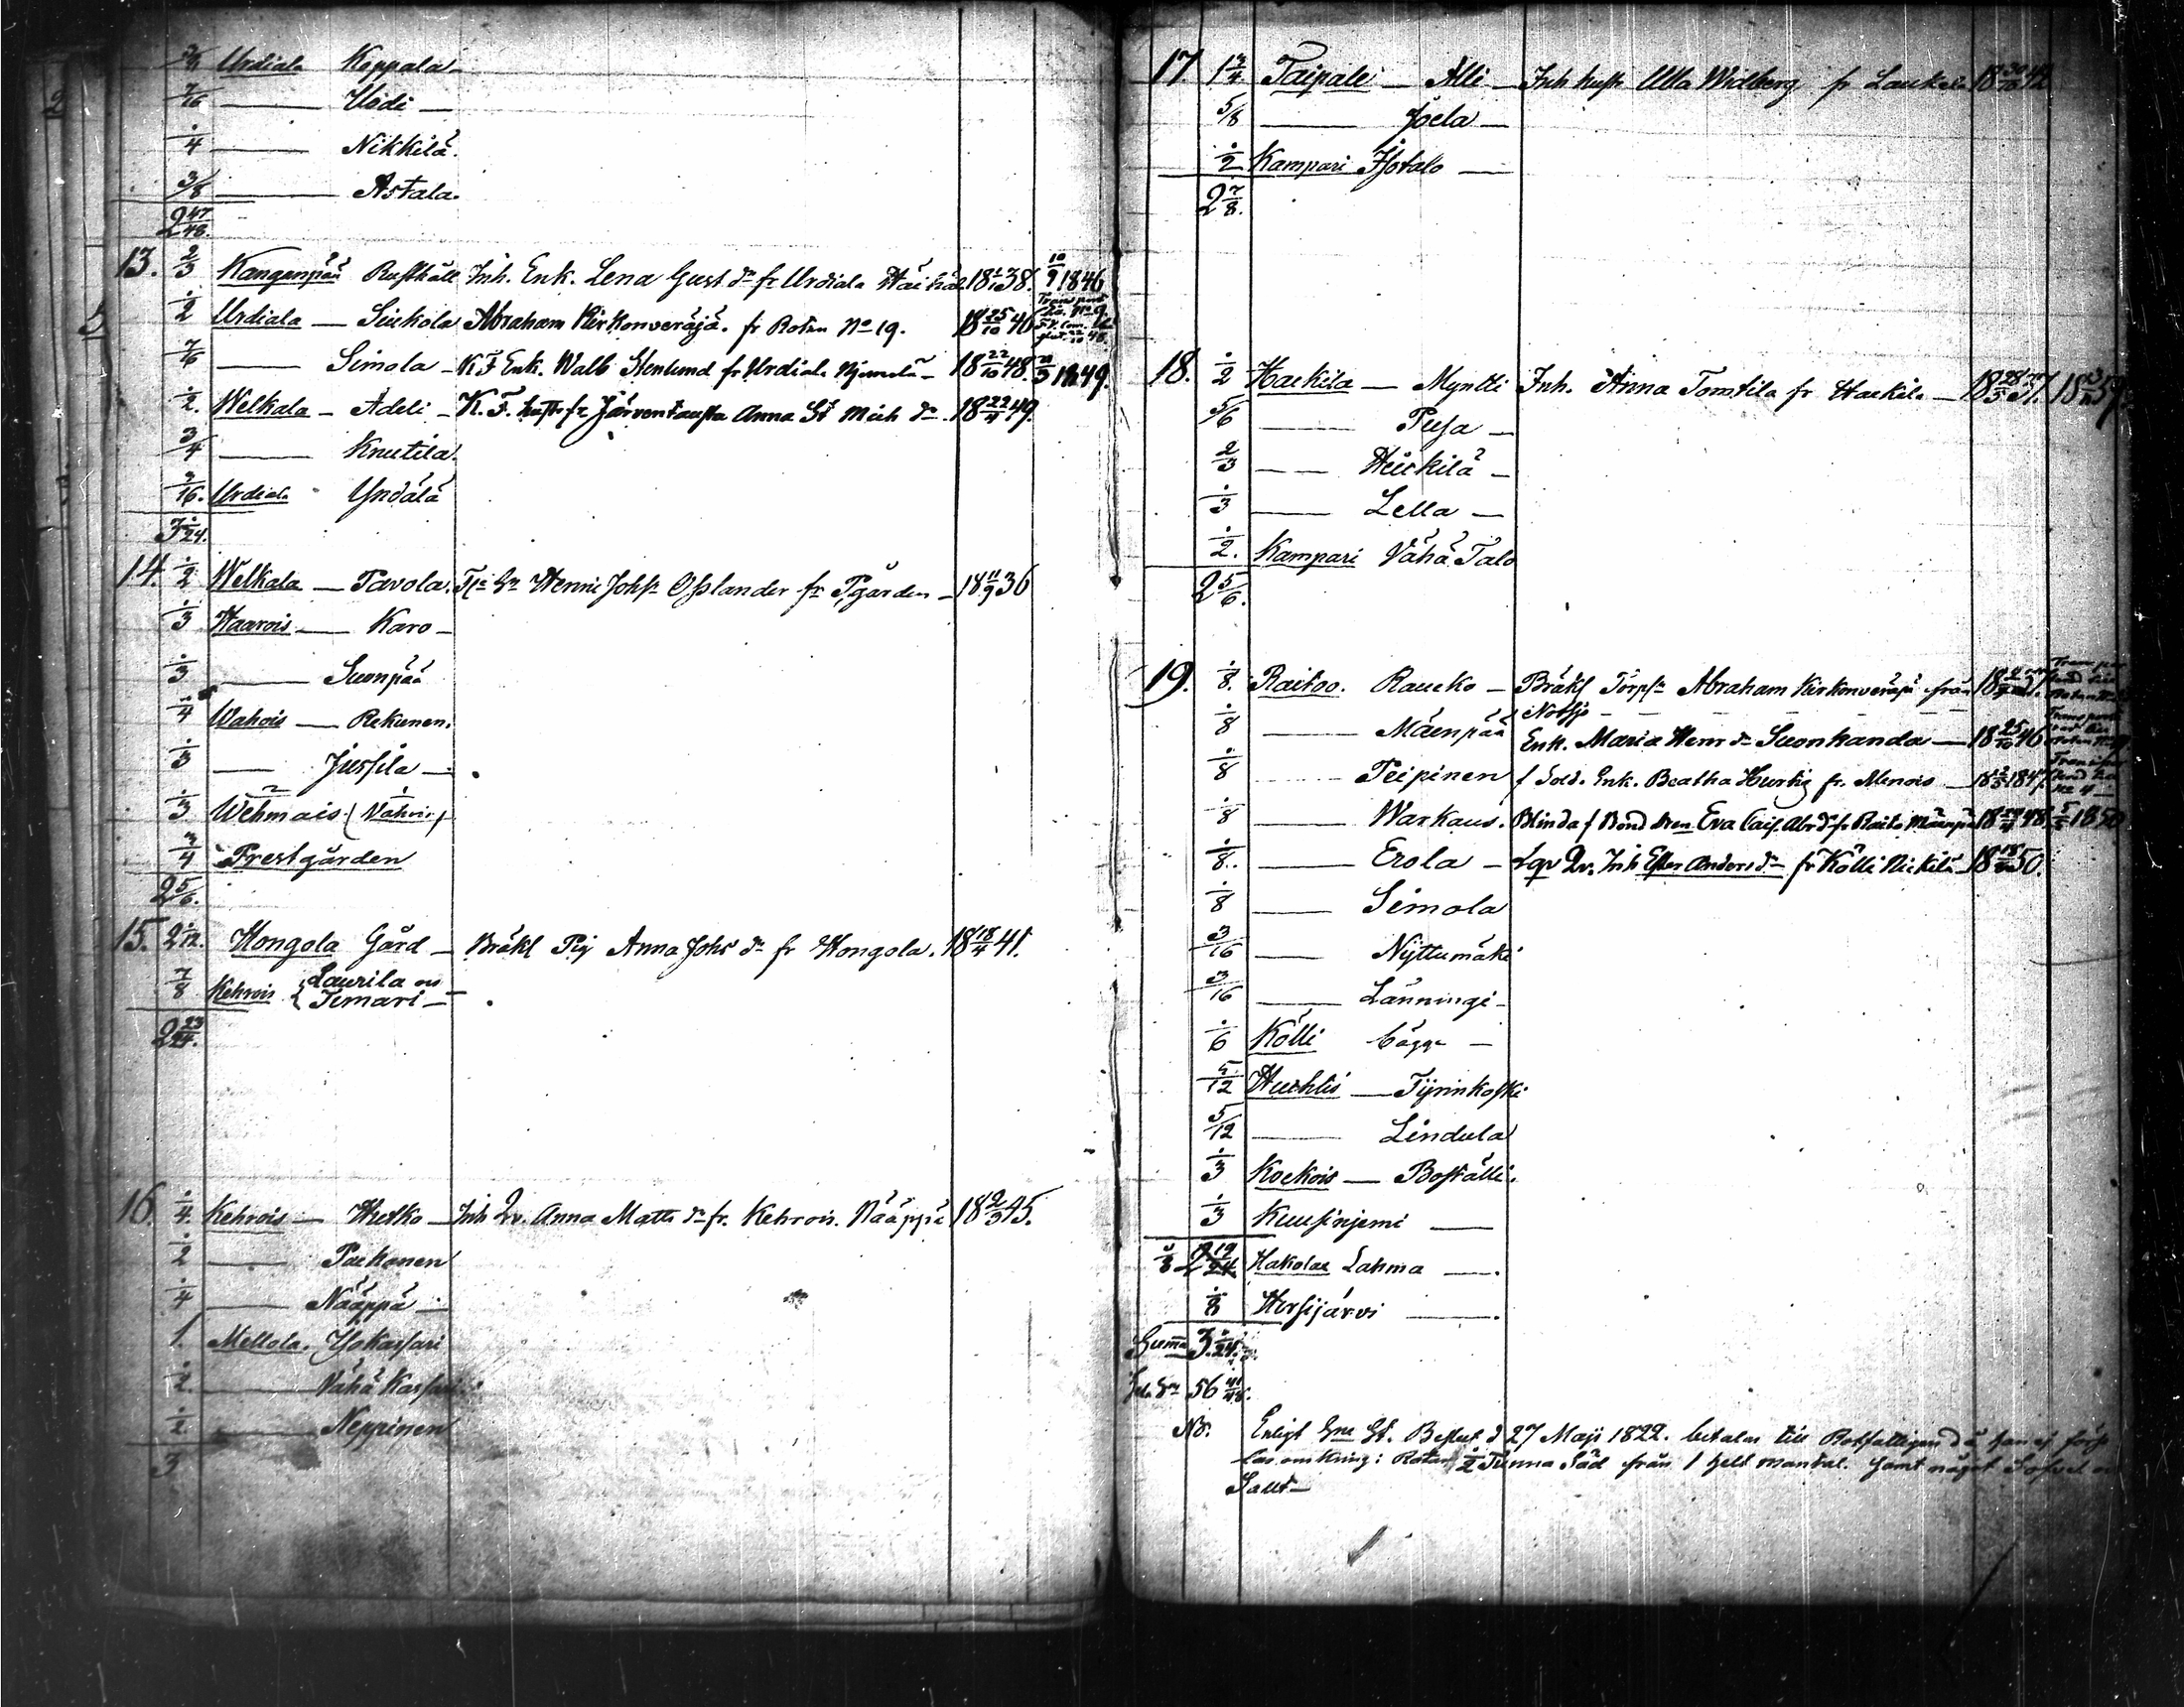 Urdiala Koppala
7/16 — Uodi —
1/4 — Nikkilä.
3/8 — Astala.
2 47/48.
13. 2/3 Kangenpää Rusthåll Inh. Enk. Lena Gust dr fr Urdiala 18 38. 10/9 1846
1/2 Urdiala — Siukola Abraham Kirkonveräjä. fr Roten No 19. 18 25/10 46
7/6 — Simola — K F Enk. Walb Stenlund fr Urdiala 18 22/10 48. 1849.
1/2. Welkala — Adeli — K. F. hustr fr Järventausta Anna St Mich dr 18 22/4 49.
3/4 — Knutila.
3/16. Urdiala Yndälä
3 1/24.
14. 1/2 Welkala — Pavola. Henric Johss Osslander fr Pgården — 18 11/9 36
1/3 Haarois — Karo —
1/3 — Suonpää
1/4 Wahois — Rekunen.
1/3 — Jussila —
1/3 Wehmais (
3/4 Prestgården
2 5/6.
15. 2 1/12. Hongola Gård — Bräkl Pig Anna Johs dr fr Hongola. 18 18/4 41.
7/8 Kehrois { Laurila
Timari —
2 23/24.
16. 1/4. Kehrois — Hutko — Inh Qv. Anna Matts dr fr. Kehrois. Nääppä 18 2/3 45.
1/2 — Paekonen
1/4 — Nääppä —
1. Mellola. Isokassari
1/2. — Vähä Kassari
1/2 — Nepprinen
3
17 1 3/4 Taipale — Alli — Inh hustr Ulla Widberg fr Laukela 18 42
5/8 — Joela —
1/2 Kampari Isotalo —
2 7/8.
18. 1/2 Haekila — Myntti Inh. Anna Tomtila fr Haekila — 18 37.
5/6 — Pusa —
2/3 — Heickilä —
1/3 — Lella —
1/2. Kampari Vähä Talo
2 5/6.
19. 1/8. Raitoo. Raucko — Bräkl Torpsn Abraham Kirkonveräjä från
1/8 — Mäenpää Enk. Maria Henr dr Suonkanda — 18 25/10 46
1/8 — Peipinen f Sold. Enk. Beatha Hurtig fr. Menois — 1847
1/8 — Warkaus. Blinda f Bond dren Eva Cais. Abr dr fr Raito Mäenpä 18 48 1850
1/8. — Erola — Inh Efter Anders dr fr Kölli Nickilä 18 50.
1/8 — Simola
3/16 — Nyttumäki
3/16 — Länningi —
1/6 Kölli Cägge —
5/12 Huehtis — Tyrinkoski
5/12 — Lindula
1/3 Koekois — Boställi.
1/3 Kuusinjemi —
1/3 Hakolae Lahma —.
1/8 Horsijärvi —.
Summa 3 1/24.
56 41/48.
NB. Enligt Sne St. Beslut d 27 Maji 1822. betalas till Rotfattigen då han ej
omkring i Rotan 1/2 Tunna Säd från 1 helt mantal. samt något
Salt —